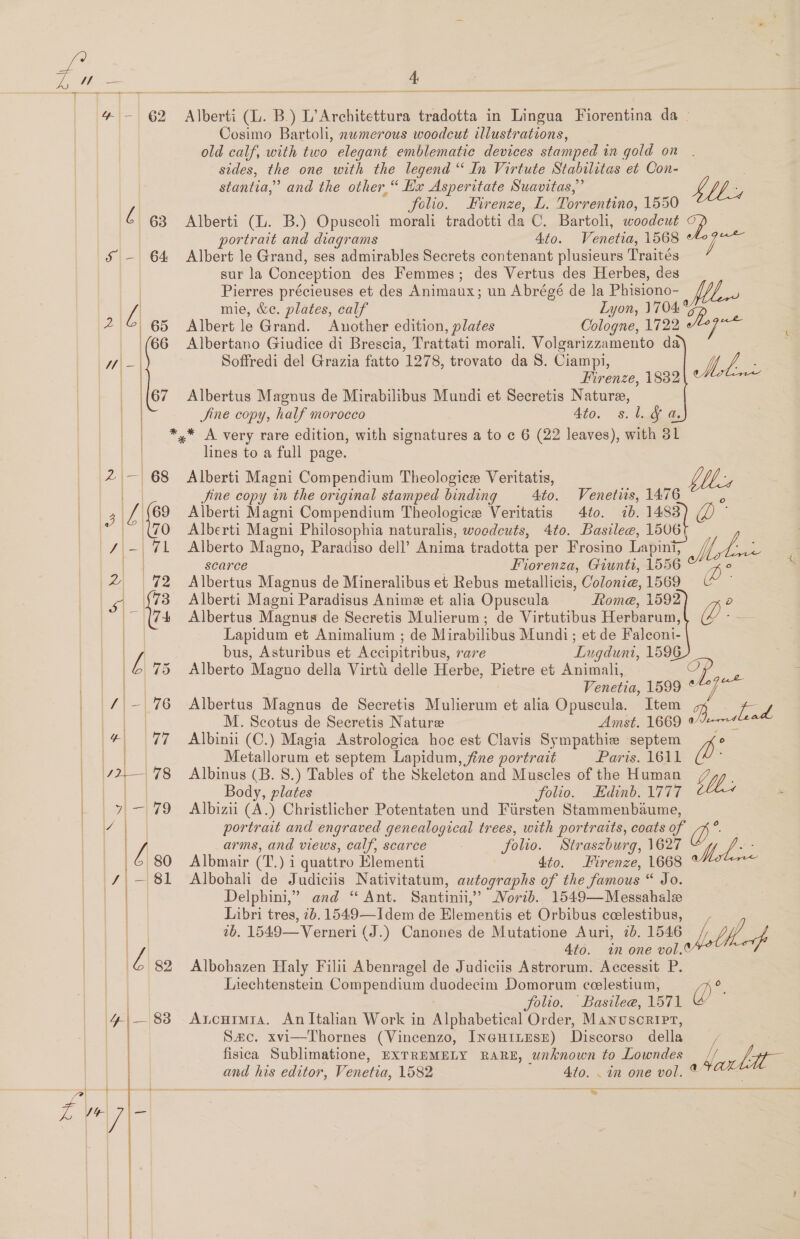 4
4 - 62 Alberti (L. B.) L'Architettura tradotta in Lingua Fiorentina da
Cosimo Bartoli, numerous woodcut illustrations,
old calf, with two elegant emblematic devices stamped in gold on
sides, the one with the legend “ In Virtute Stabilitas et Con-
stantia,” and the other “ Ex Asperitate Suavitas,”
folio. Firenze, L. Torrentino, 1550 Ellis
6 63 Alberti (L. B.) Opuscoli morali tradotti da C. Bartoli, woodcut
portrait and diagrams 4to. Venetia, 1568
5 - 64 Albert le Grand, ses admirables Secrets contenant plusieurs Traités
sur la Conception des Femmes; des Vertus des Herbes, des
Pierres précieuses et des Animaux; un Abrégé de la Phisiono-
mie, &c. plates, calf Lyon, 1704 Allen
2 6 65 Albert le Grand. Another edition, plates Cologne, 1722
66 Albertano Giudice di Brescia, Trattati morali. Volgarizzamento da
11 - Soffredi del Grazia fatto 1278, trovato da S. Ciampi,
Firenze, 1832 Molini
67 Albertus Magnus de Mirabilibus Mundi et Secretis Naturæ,
fine copy, half morocco 4to. s. l. & a.
*** A very rare edition, with signatures a to c 6 (22 leaves), with 31
lines to a full page.
2 - 68 Alberti Magni Compendium Theologicæ Veritatis,
fine copy in the original stamped binding 4to. Venetiis, 1476 Ellis
3 6 69 Alberti Magni Compendium Theologicæ Veritatis 4to. ib. 1483
70 Alberti Magni Philosophia naturalis, woodcuts, 4to. Basileæ, 1506
1 - 71 Alberto Magno, Paradiso dell' Anima tradotta per Frosino Lapini,
scarce Fiorenza, Giunti, 1556 Molini
2 72 Albertus Magnus de Mineralibus et Rebus metallicis, Coloniæ, 1569
5 - 73 Alberti Magni Paradisus Animæ et alia Opuscula Romæ, 1592
74 Albertus Magnus de Secretis Mulierum; de Virtutibus Herbarum,
Lapidum et Animalium ; de Mirabilibus Mundi ; et de Falconi-
bus, Asturibus et Accipitribus, rare Lugduni, 1596
6 75 Alberto Magno della Virtù delle Herbe, Pietre et Animali,
Venetia, 1599
1 - 76 Albertus Magnus de Secretis Mulierum et alia Opuscula. Item
M. Scotus de Secretis Naturæ Amst. 1669 Bumstead
4 77 Albinii (C.) Magia Astrologica hoc est Clavis Sympathiæ septem
Metallorum et septem Lapidum, fine portrait Paris. 1611
12 - 78 Albinus (B. S.) Tables of the Skeleton and Muscles of the Human
Body, plates folio. Edinb. 1777 Ellis
7 - 79 Albizii (A.) Christlicher Potentaten und Fürsten Stammenbäume,
portrait and engraved genealogical trees, with portraits, coats of
arms, and views, calf, scarce folio. Straszburg, 1627
6 80 Albmair (T.) i quattro Elementi 4to. Firenze, 1668 Molini
1 - 81 Albohali de Judiciis Nativitatum, autographs of the famous “ Jo.
Delphini,” and “ Ant. Santinii,” Norib. 1549—Messahalæ
Libri tres, ib. 1549—Idem de Elementis et Orbibus cœlestibus,
ib. 1549—Verneri (J.) Canones de Mutatione Auri, ib. 1546
4to. in one vol.
6 82 Albohazen Haly Filii Abenragel de Judiciis Astrorum. Accessit P.
Liechtenstein Compendium duodecim Domorum cœlestium,
folio. Basileæ, 1571
4 - 83 ALCHIMIA. An Italian Work in Alphabetical Order, MANUSCRIPT,
SÆC. xvi—Thornes (Vincenzo, INGHILESE) Discorso della
fisica Sublimatione, EXTREMELY RARE, unknown to Lowndes
and his editor, Venetia, 1582 4to. in one vol. Hazlitt